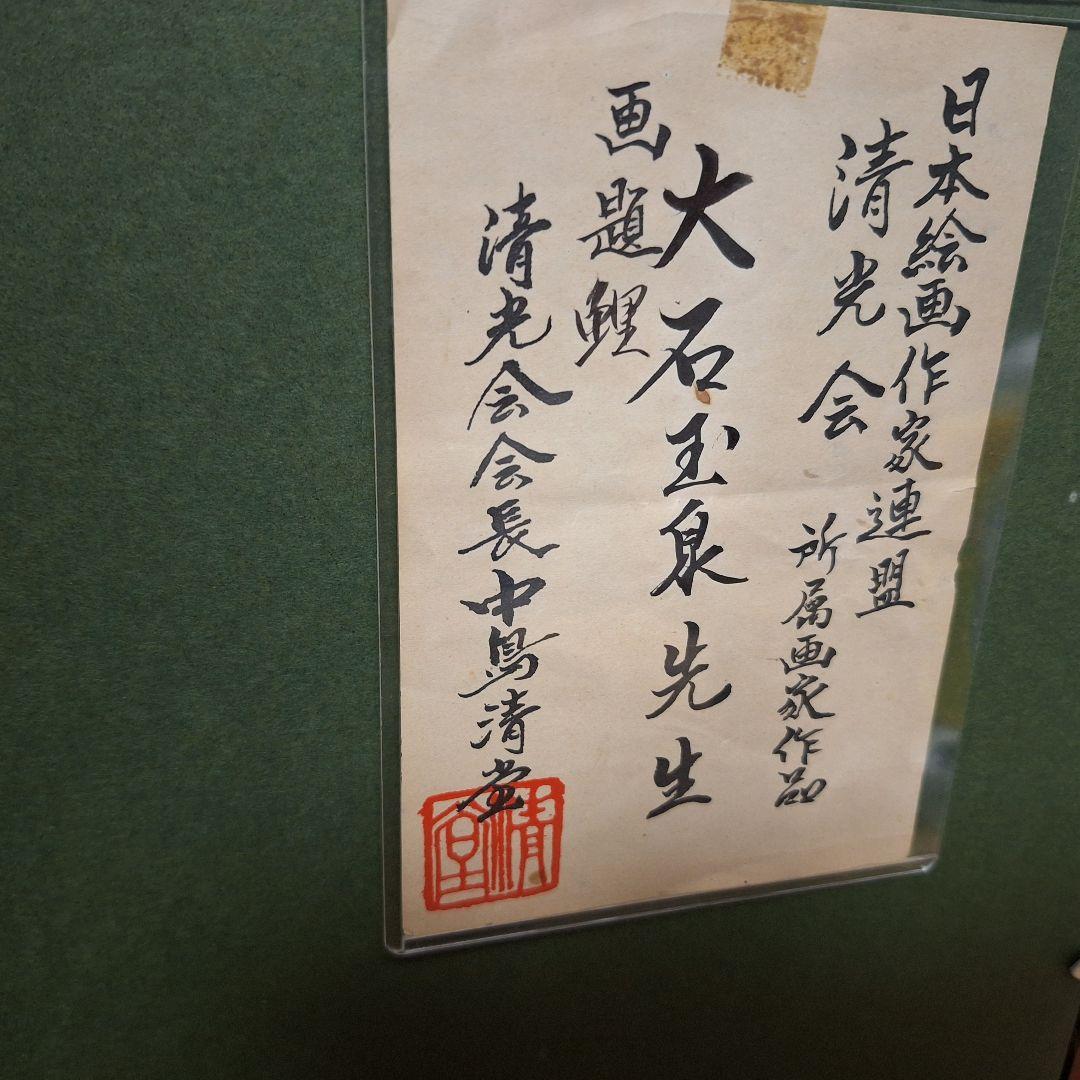 日本絵画作家連盟
清光会 所属画家作品
大石玉泉先生
画題 鯉
清光会会長 中島清堂
清堂